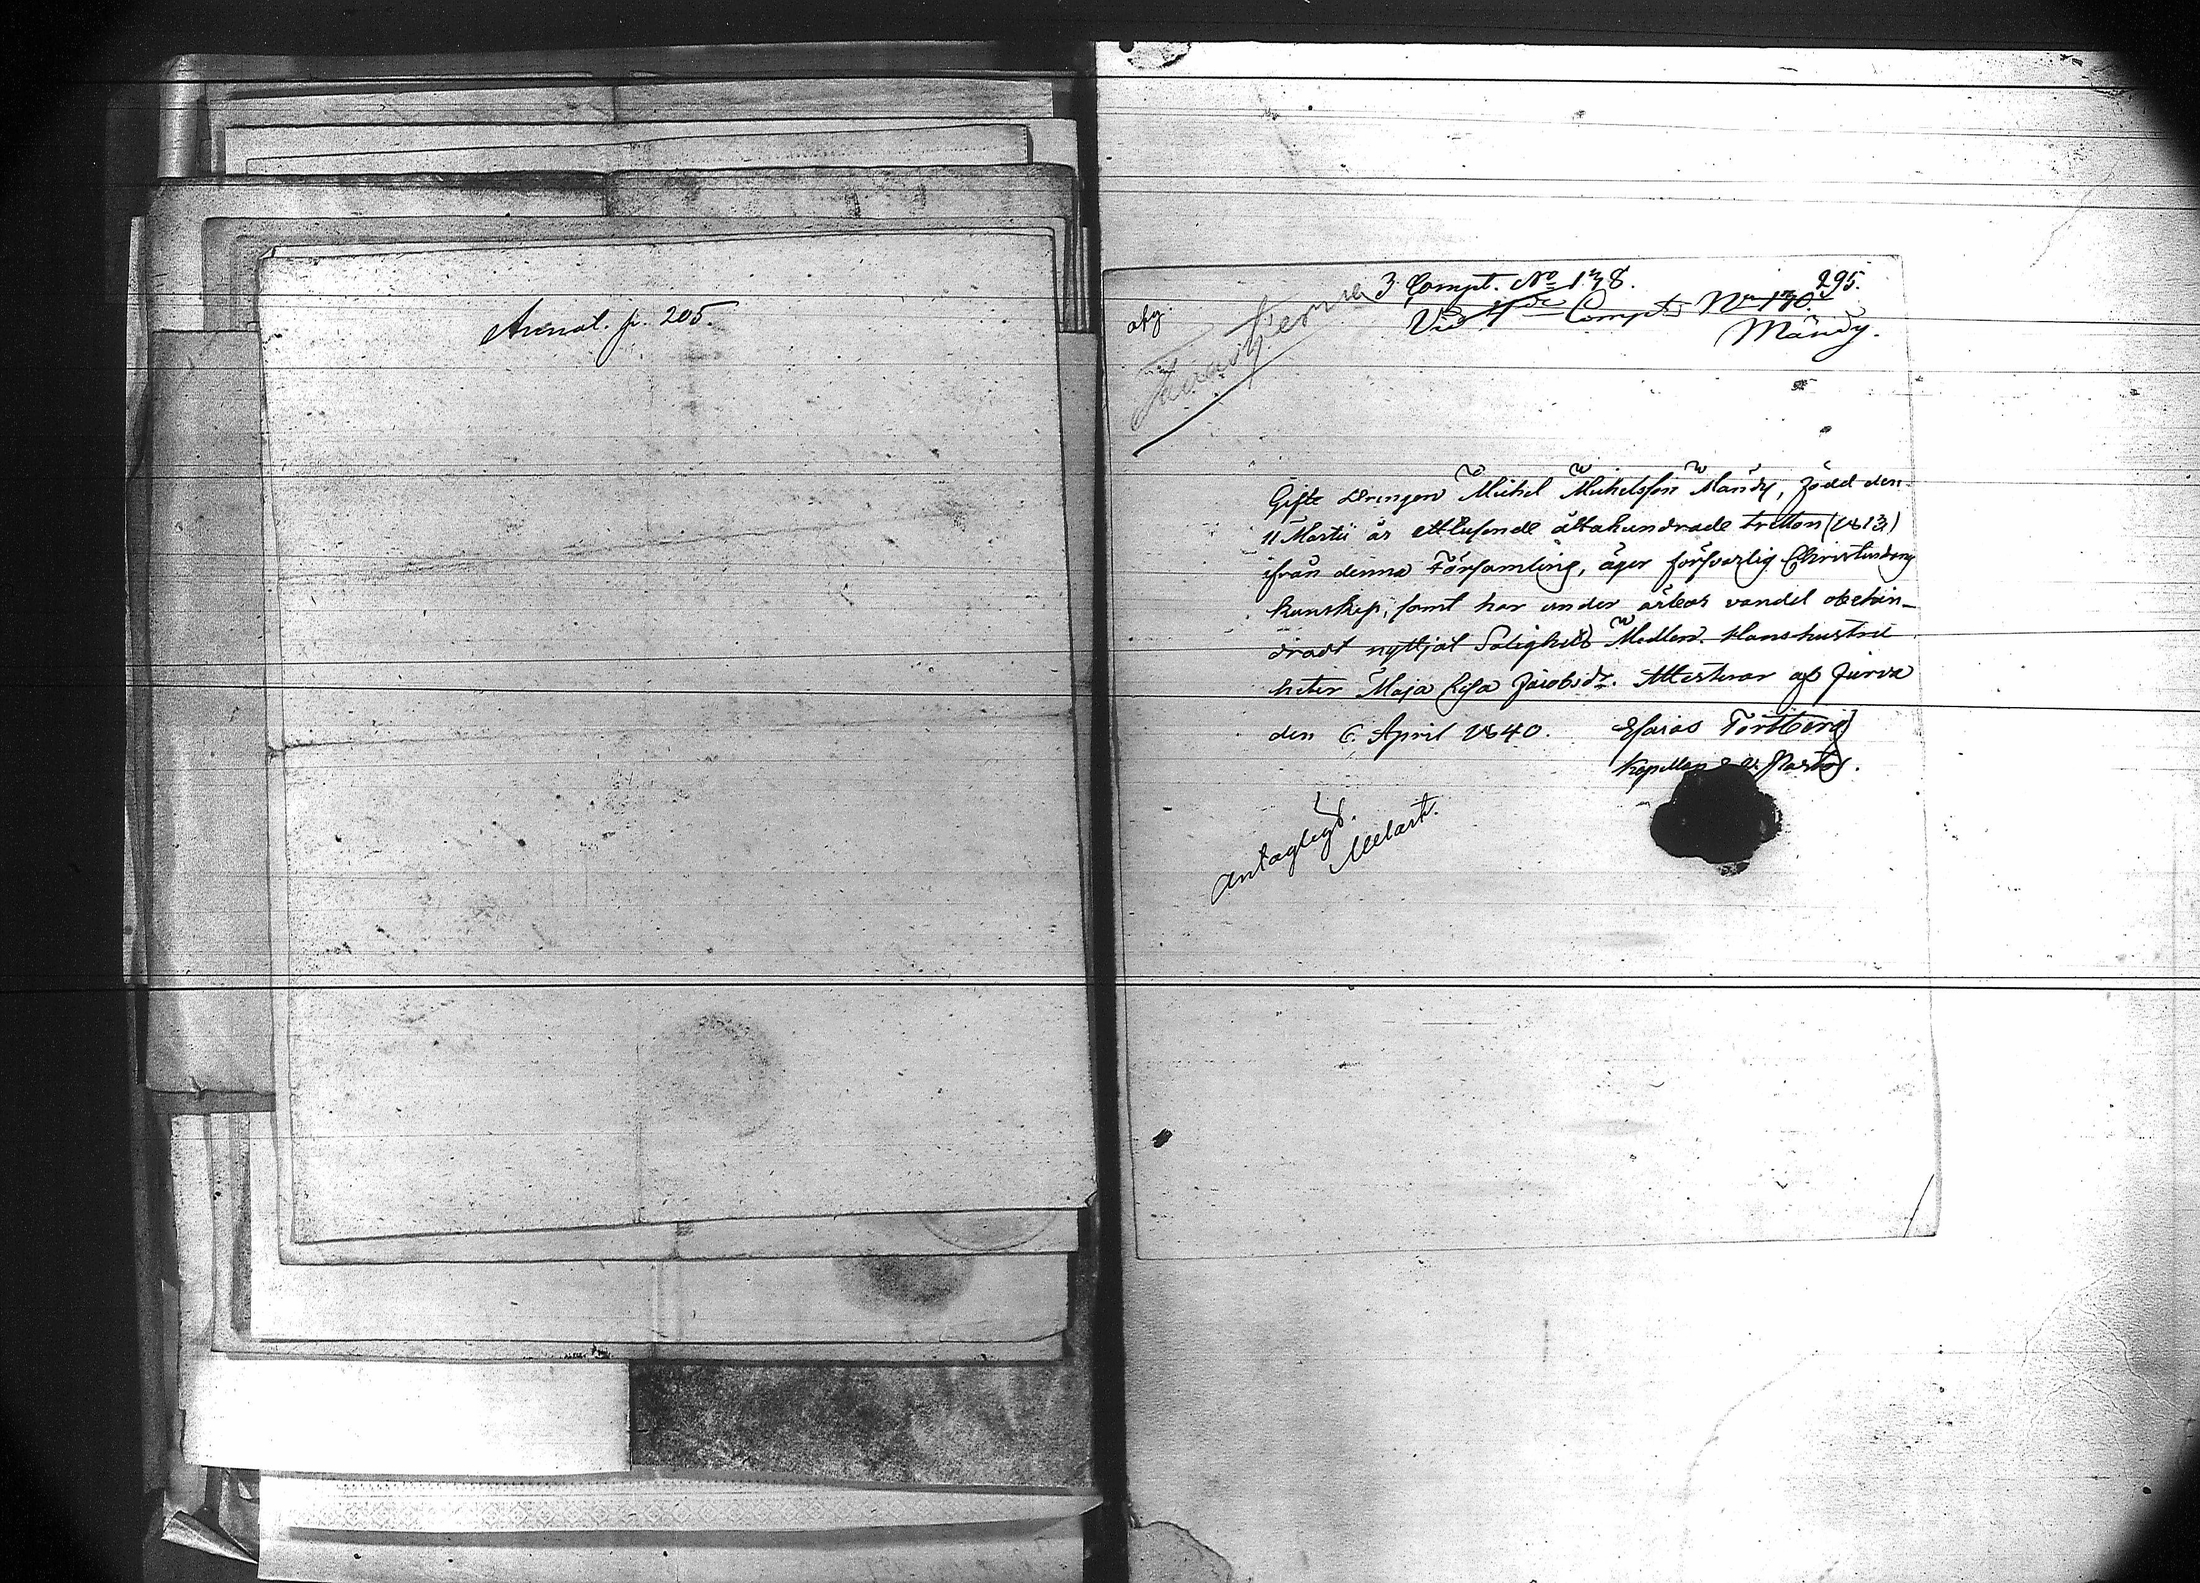 Annot. p. 205.
3 Compt. No 138.
295.
afg.
Vid 4de Compts No 130
Mändy.
Gifte Drängen Michel Michelsson Mändy, född den
11 Martii år ett tusende åttahundrade tretton (1813)
ifrån denna Församling, äger försvarlig Christendoms
kunskap, samt har under ärbar vandel obehin-
dradt nyttjat Salighets Medlen. Hans hustru
heter Maja Lisa Jacobsdr. Attesterar af Jurva
den 6 April 1840. Esaias Törtberg
Kapellan & V. Pastor.
Antaglegd.
Melart.